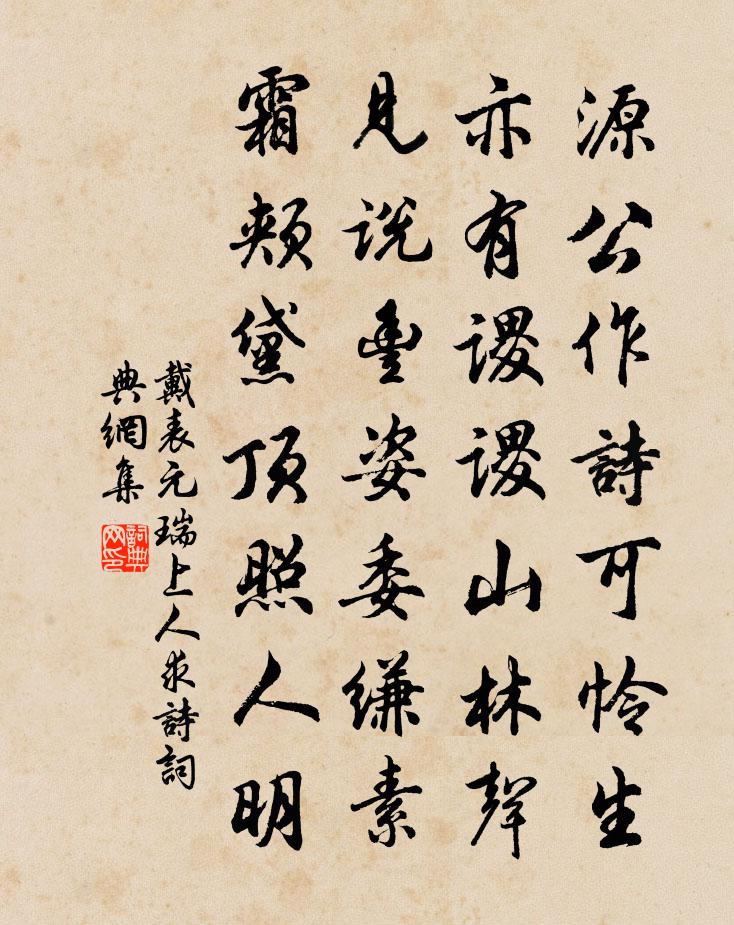 源公作詩可怜生
亦有謖謖山林聲
見説豐姿委縑素
霜頰黛頂照人明
戴表元瑞上人求詩詞
典網集
詞典
网印